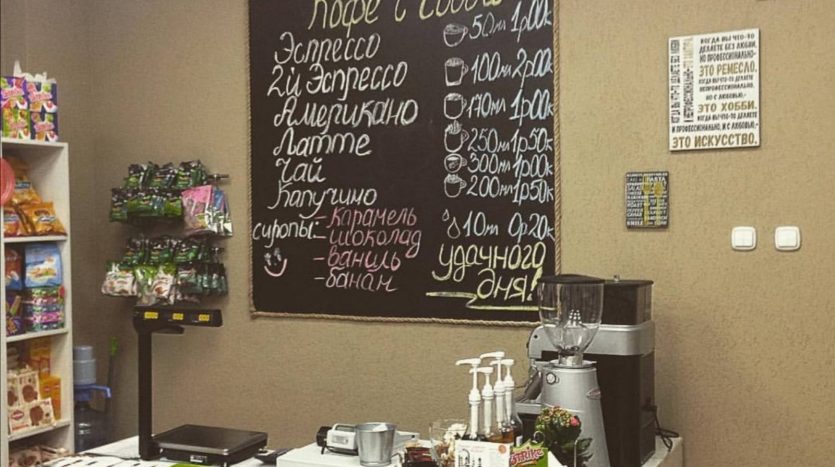 Кофе с собой
Эспрессо 50мл 1р00к
2й Эспрессо 100мл 2р00к
Американо 170мл 1р00к
Латте 250мл 1р50к
Чай 300мл 1р00к
Капучино 200мл 1р50к
сиропы: - карамель 10мл 0р20к
- шоколад
- ваниль
- банан
удачного
дня!
КОГДА ВЫ ЧТО-ТО
ДЕЛАЕТЕ БЕЗ ЛЮБВИ,
НО ПРОФЕССИОНАЛЬНО-
ЭТО РЕМЕСЛО.
КОГДА ВЫ ЧТО-ТО ДЕЛАЕТЕ
НЕПРОФЕССИОНАЛЬНО,
НО С ЛЮБОВЬЮ,-
ЭТО ХОББИ.
КОГДА ВЫ ЧТО-ТО ДЕЛАЕТЕ
И ПРОФЕССИОНАЛЬНО, И С ЛЮБОВЬЮ,-
ЭТО ИСКУССТВО.
PASTA